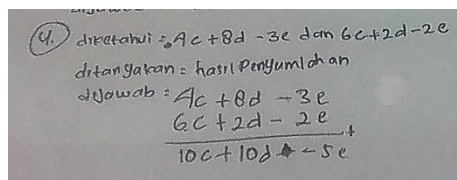 4. diketahui = 4c + 8d - 3e dan 6c + 2d - 2e
ditanyakan = hasil Penyumlahan
dijawab = 4c + 8d - 3e
6c + 2d - 2e
+
10c + 10d - 5e